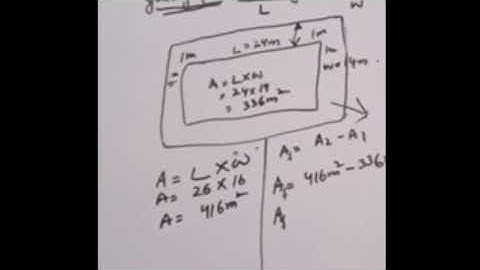 L
W
1m
L = 24m
1m
1m
1m
W = 14m
A = L x W
= 24 x 14
= 336m²
A = L x W
A = 26 x 16
A = 416m²
Af = A2 - A1
Af = 416m² - 336
Af